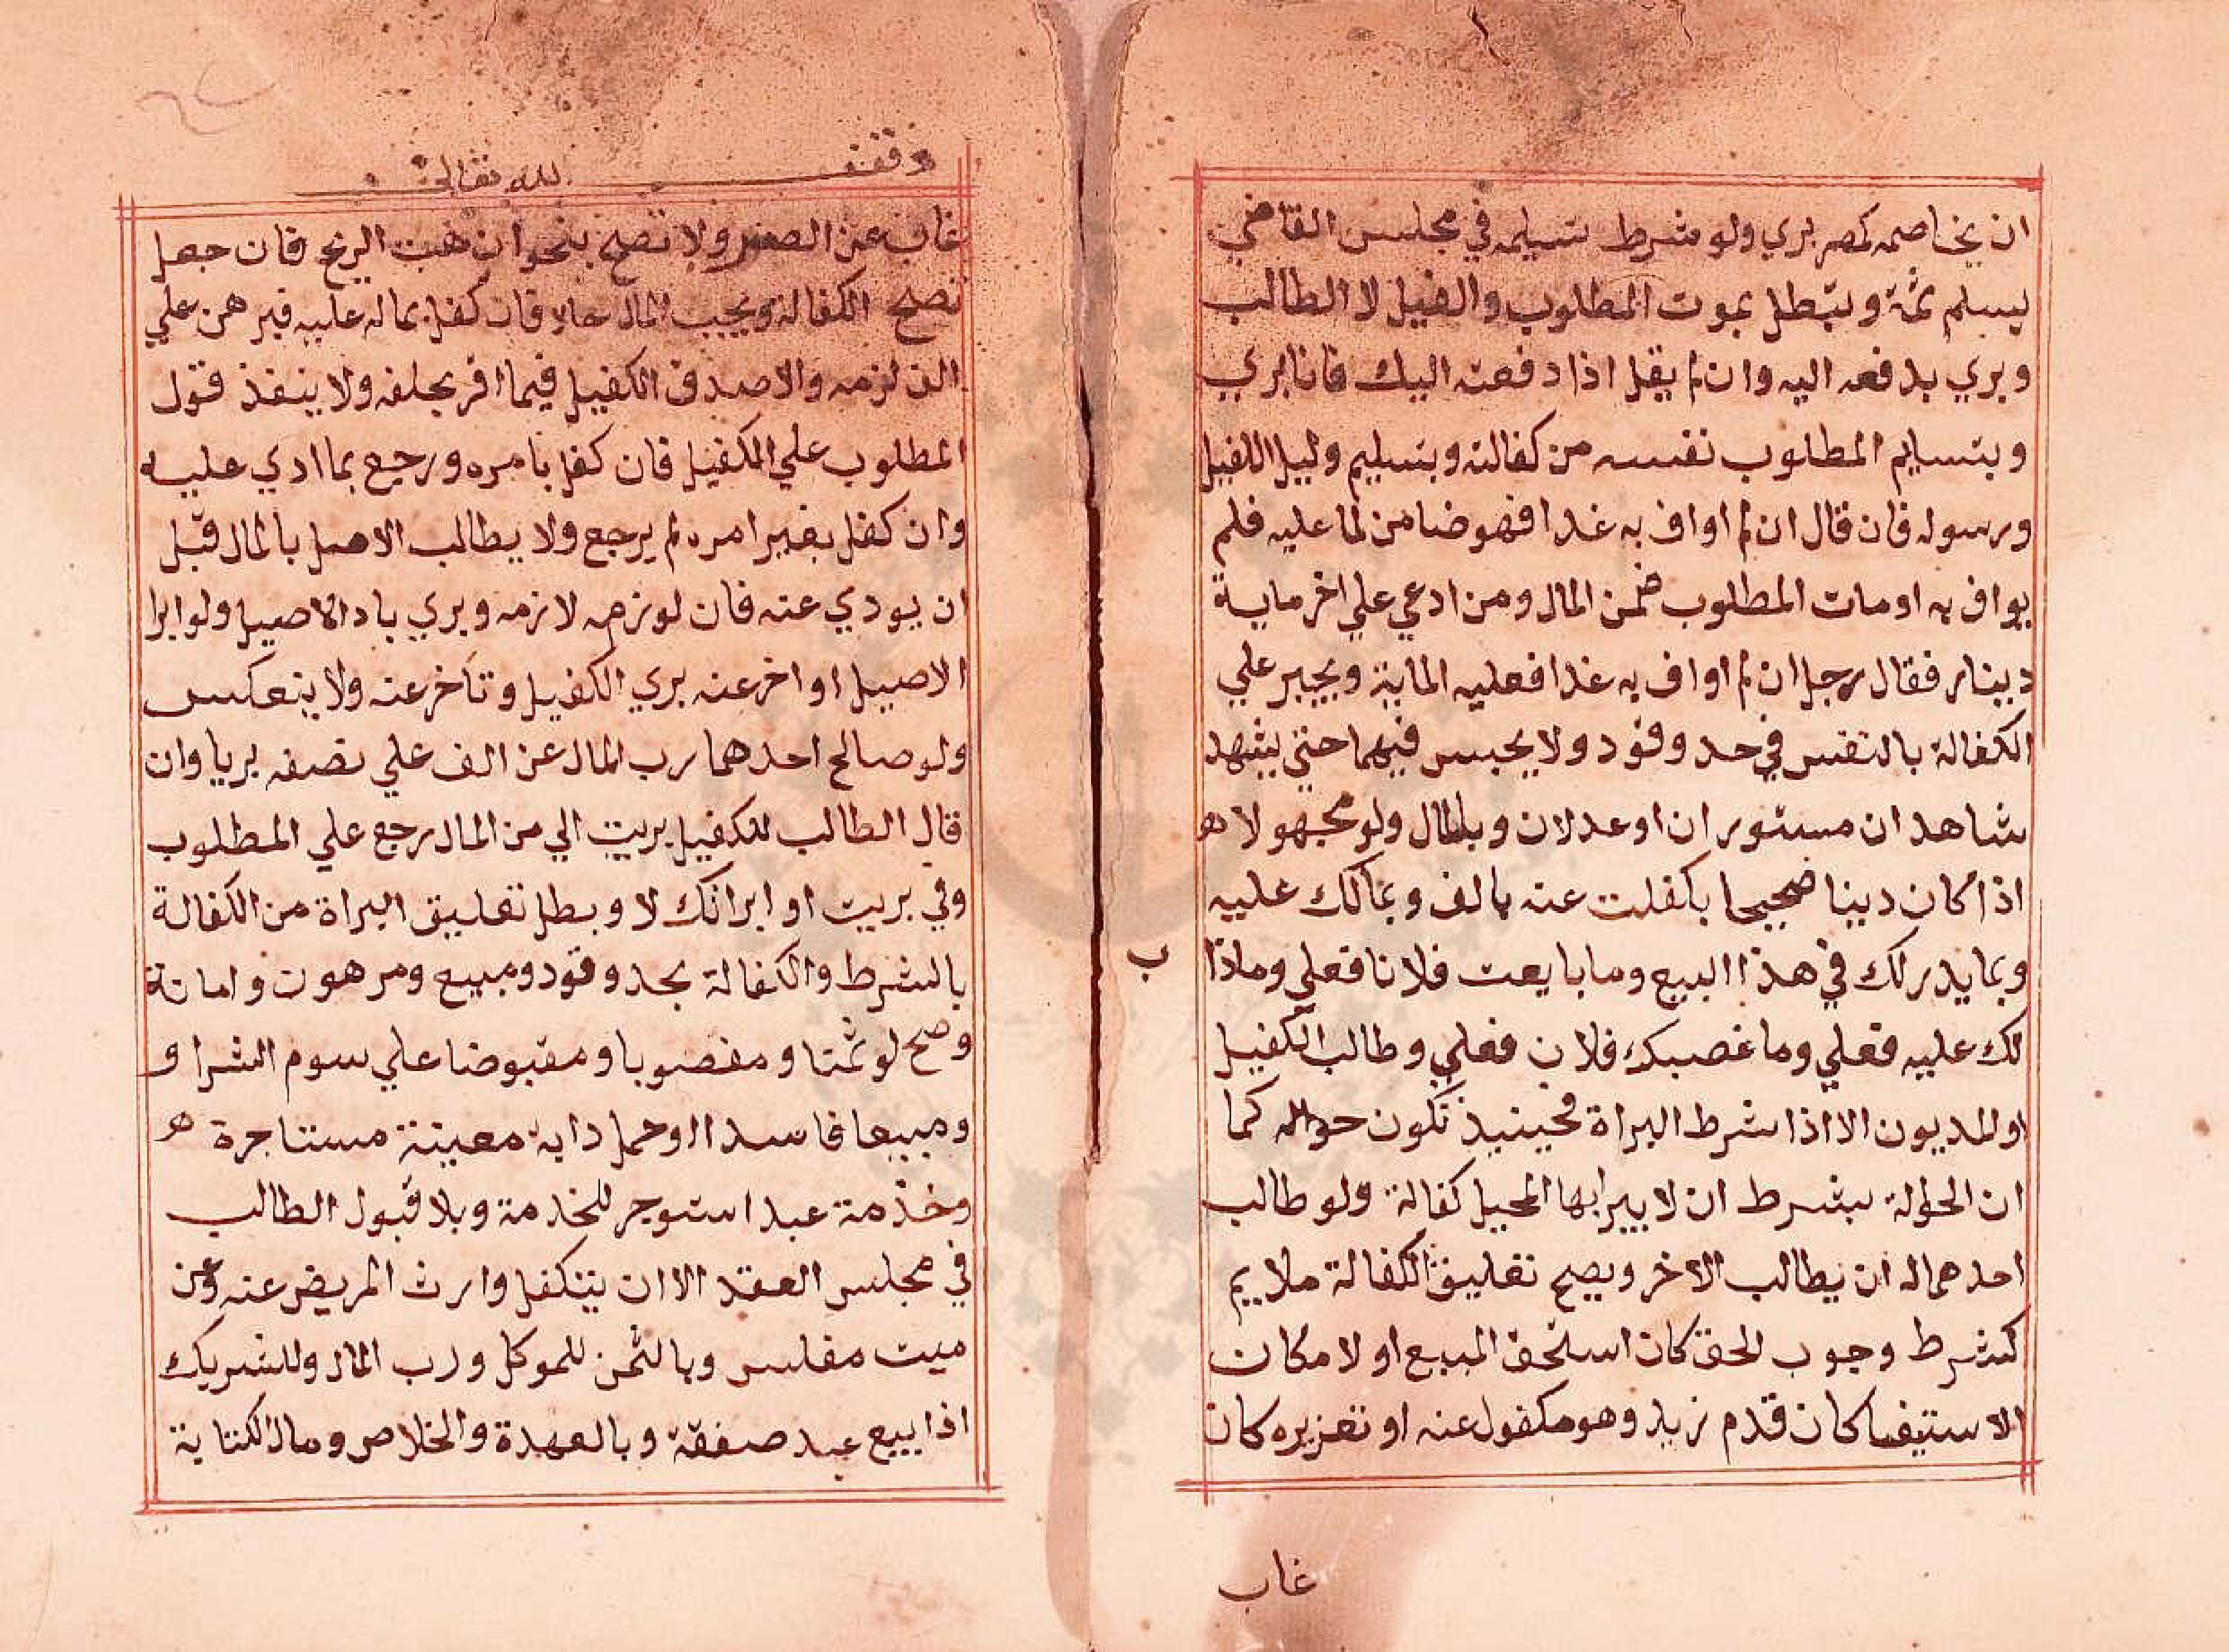 ان يخاصمه كمصر بري ولو شرط تسليمه في مجلس القاضي
ليسلم ثمة وتبطل بموت المطلوب والفيل لا الطالب
وبري بدفعه اليه وان لم يقل اذا دفعته اليك فانا بري
وبتسليم المطلوب نفسه من كفالته وبتسليم وليل اللفيل
ورسوله فان قال ان لم اواف به غدا فهو ضامن لما عليه فلم
يواف به اومات المطلوب ضمن المال ومن ادعي علي اخر ماية
دينار فقال رجل ان لم اواف به غدا فعليه الماية ويجبر علي
الكفالة بالنفس في حد وقود ولا يحبس فيهما حتي يشهد
شاهدان مستوران او عدلان وبلمال ولو مجهولا ه
اذا كان دينا صحيحا بكفلت عنه بالف وبمالك عليه
وبما يدرلك في هذا البيع وما بايعت فلانا فعلي وماذا ب
لك عليه فعلي وما غصبك فلان فعلي وطالب الكفيل
اولمديون الا اذا شرط البراة فحينيذ تكون حواله كما
ان الحوالة بشرط ان لا يبرا بها المحيل كفالة ولو طالب
احدهما له ان يطالب الاخر ويصح تعليق الكفالة ملايم
كشرط وجوب الحق كان استحق المبيع او لامكان
الاستيفا كان قدم زيد وهو مكفول عنه او تعزيره كان
غاب
وقف لله تعالي
غاب عن المصر ولا تصح بنحو ان هبت الريح فان جعل
تصح الكفالة ويجب المال حالا فان كفل بماله عليه فبرهن علي
الف لزمه والا صدق الكفيل فيما اقر بحلفه ولا ينفذ قول
المطلوب علي الكفيل فان كفل بامره ورجيع بما ادي عليه
وان كفل بغير امره لم يرجع ولا يطالب الاصل بالمال قبل
ان يودي عنه فان لوزمه لازمه وبري باد الاصيل ولو ابرا
الاصيل او اخر عنه بري الكفيل وتاخر عنه ولا ينعكس
ولو صالح احدهما رب المال عن الف علي نصفه بريا وان
قال الطالب للكفيل بريت الي من المال رجع علي المطلوب
وفي بريت او ابراتك لا وبطل تعليق البراة من الكفالة
بالشرط والكفالة بحد وقود ومبيع ومرهون وامانة
وصح لو ثمنا ومغصوبا ومقبوضا علي سوم الشرا و
ومبيعا فاسدا اوحمل دابة معينة مستاجرة ه
وخدمة عبد استوجر للخدمة وبلا قبول الطالب
في مجلس العقد الا ان يتكفل وارث المريض عنه وعن
ميت مفلس وبالثمن للموكل ورب المال وللشريك
اذا بيع عبد صفقة وبالعهدة والخلاص ومال الكتابة